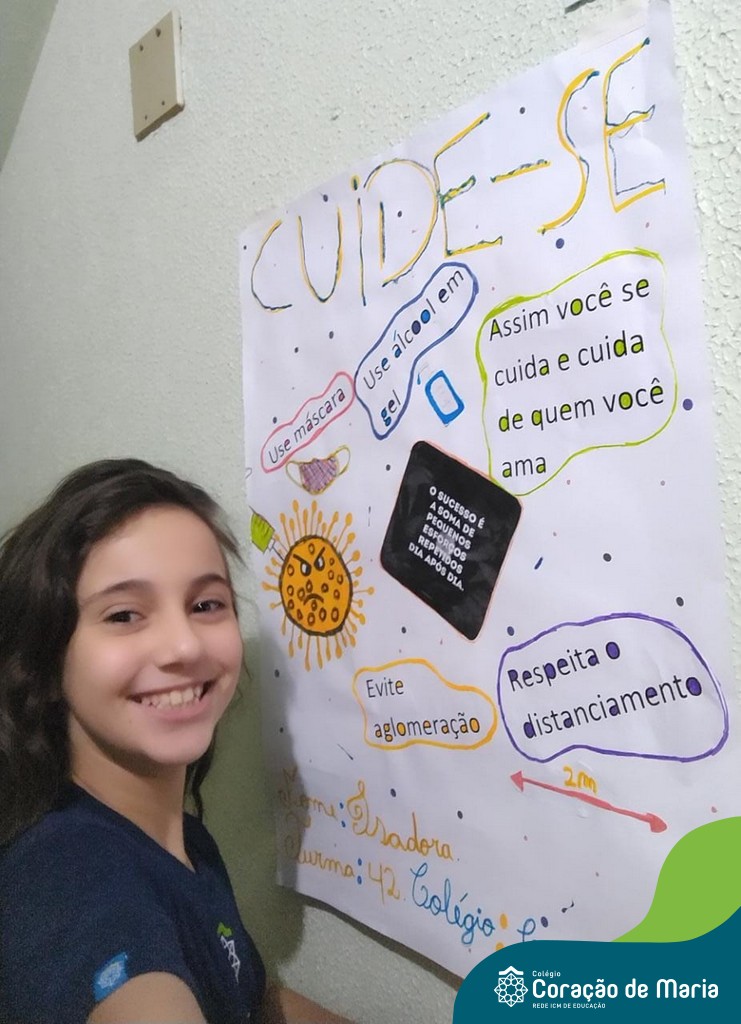 CUIDE-SE
Use máscara
Use álcool em
gel
Assim você se
cuida e cuida
de quem você
ama
O SUCESSO É
A SOMA DE
PEQUENOS
ESFORÇOS
REPETIDOS
DIA APÓS DIA.
Evite
aglomeração
Respeita o
distanciamento
2m
Nome: Isadora.
Turma: 42. Colégio:
Colégio
Coração de Maria
REDE ICM DE EDUCAÇÃO